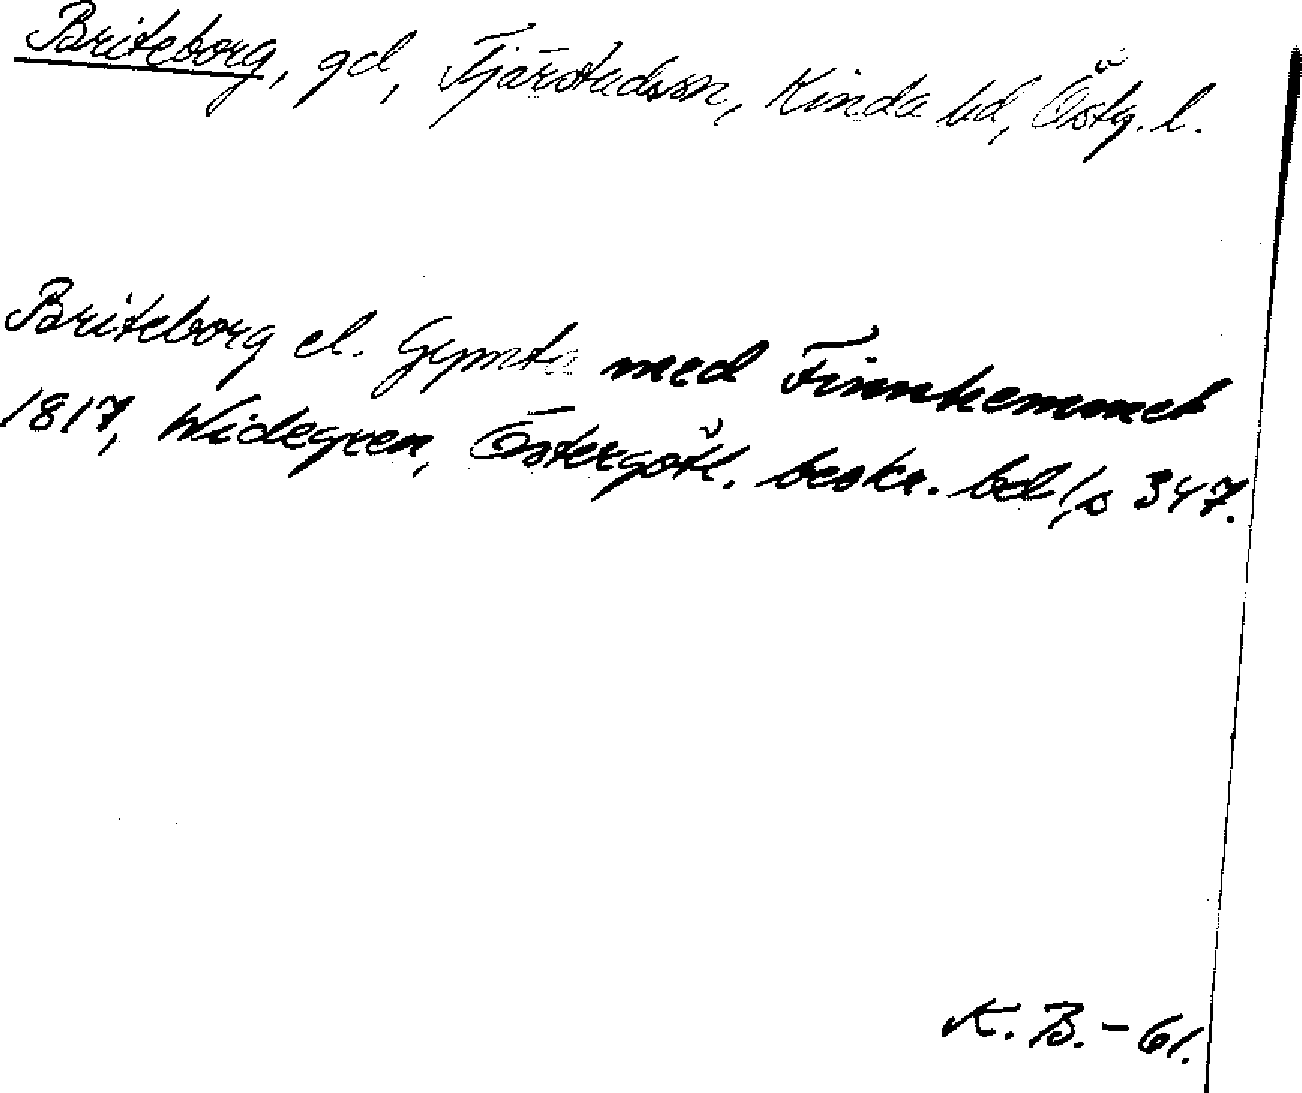 Briteborg, gd, Tjärstadssn, Kinda hd, Östg. l.
Briteborg el. Gymsta med Finnhemmet
1817, Widegren, Östergötl. beskr. bd 1, s 347.
K. B. - 61.